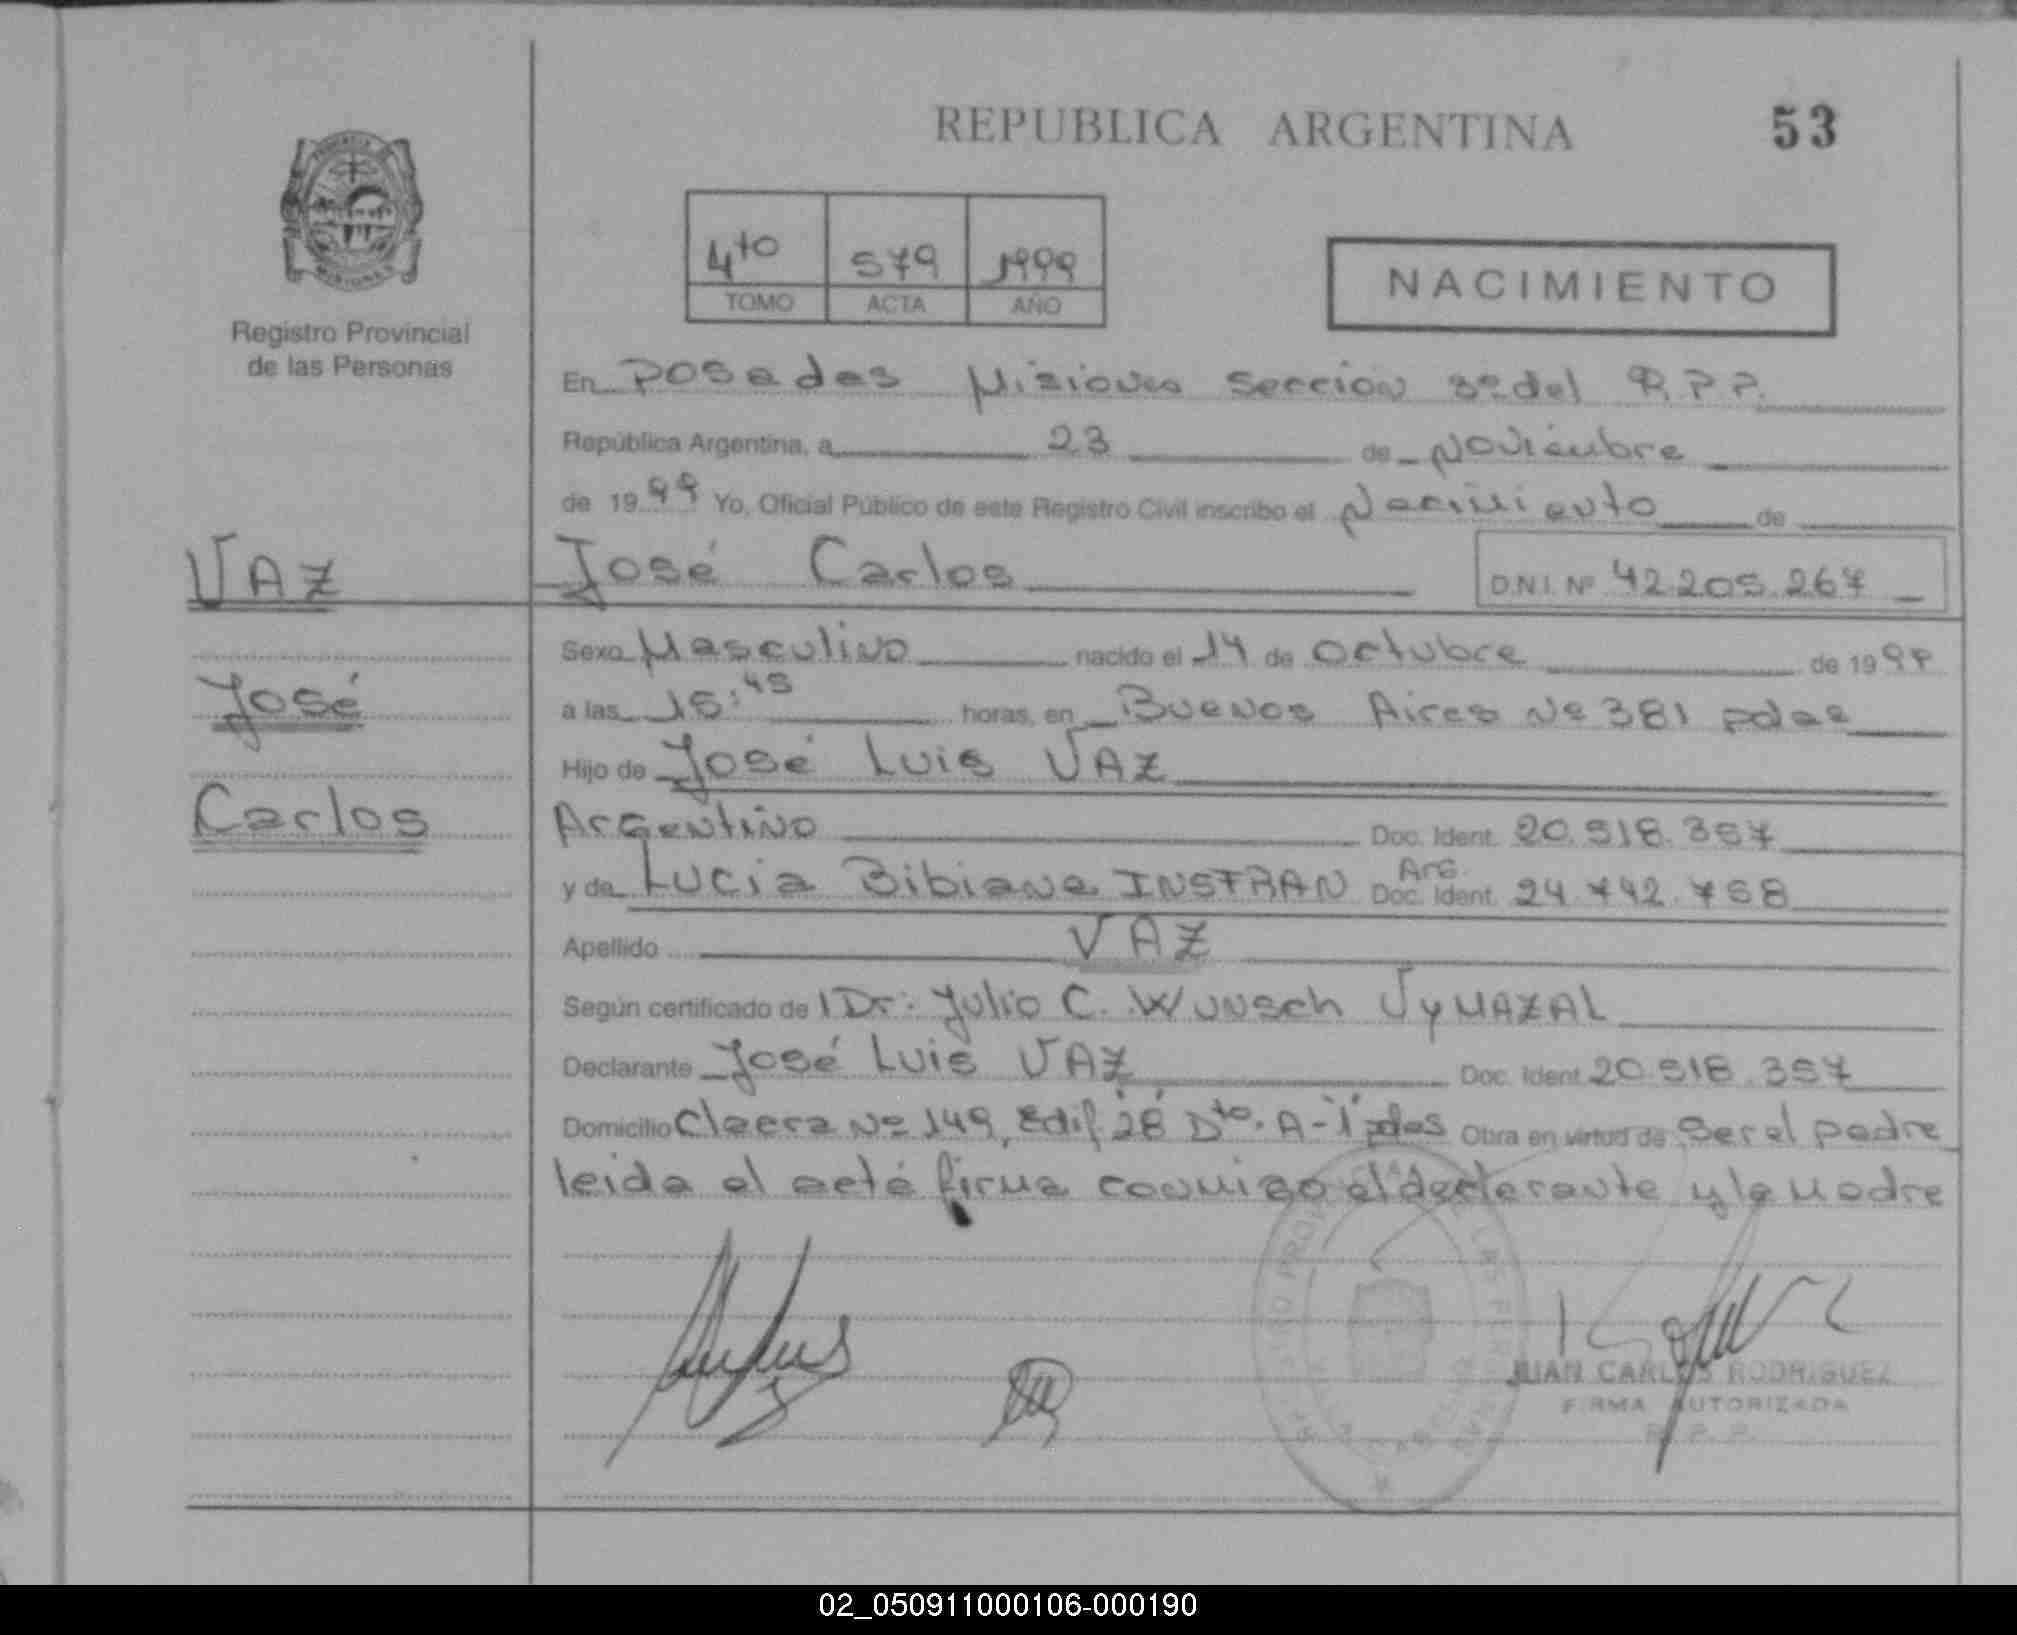 REPUBLICA ARGENTINA 53
4to 579 1999
TOMO ACTA AÑO
NACIMIENTO
Registro Provincial
de las Personas
En Posadas Misiones Sección 3º del R.P.P.
República Argentina, a 23 de Noviembre
de 1999 Yo, Oficial Público de este Registro Civil inscribo el Nacimiento de
VAZ José Carlos D.N.I. Nº 42.205.267
Sexo Masculino nacido el 14 de Octubre de 1999
José
a las 15:45 horas, en Buenos Aires Nº 381 pdas
Hijo de José Luis VAZ
Carlos
Argentino Doc. Ident. 20.518.357
y de Lucia Bibiana INSFRAN Arg. Doc. Ident. 24.742.758
Apellido VAZ
Según certificado de Dr: Julio C. Wunsch VyMAZAL
Declarante José Luis VAZ Doc. Ident. 20.518.357
Domicilio Nº 149, Edif. 28 Dto. A-1 pdas Obra en virtud de Ser el padre
leida el acta firma conmigo el declarante y la Madre
JUAN CARLOS RODRIGUEZ
FIRMA AUTORIZADA
R. P. P.
02_050911000106-000190